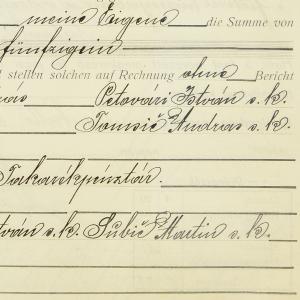 meine Eigene die Summe von
fünfzigein
stellen solchen auf Rechnung ohne Bericht
Petovári István s. k.
Tomsič Andras s. k.
Takarékpénztár.
tván s. k. Šubič Martin s. k.